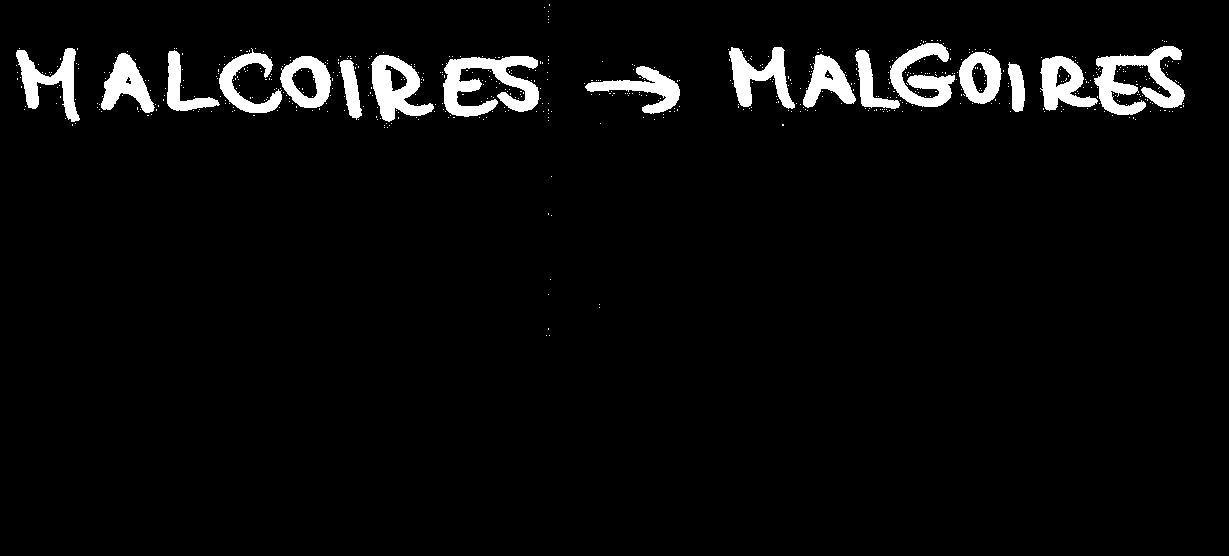 MALCOIRES → MALGOIRES